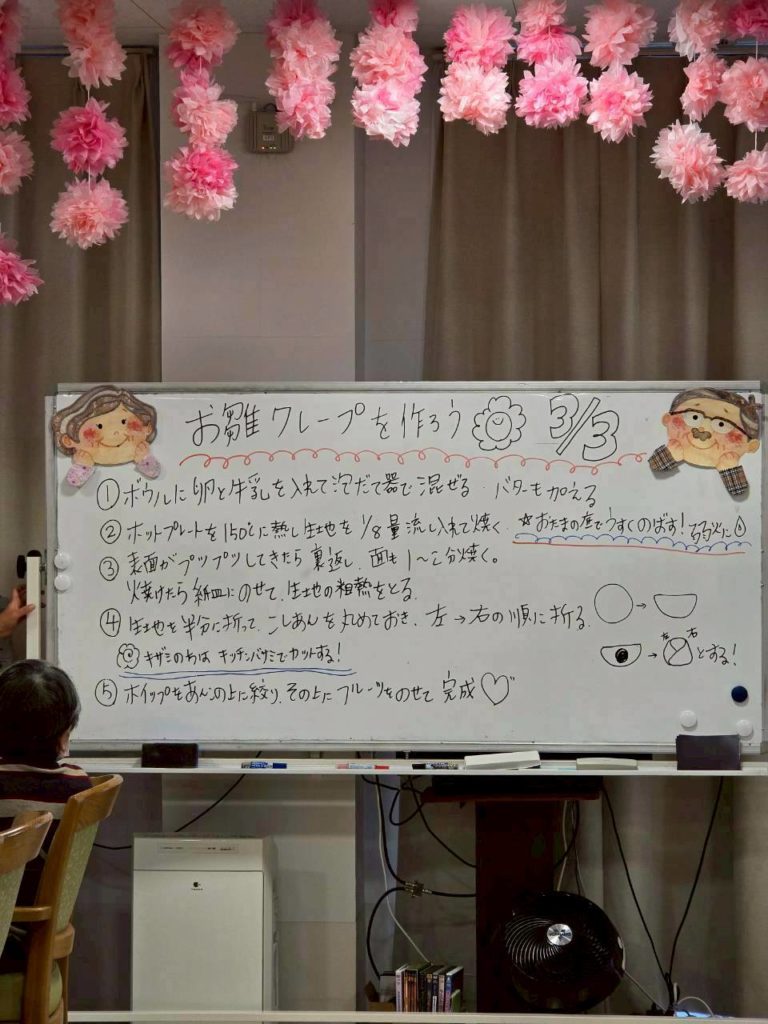 お雛クレープを作ろう 3/3
①ボウルに卵と牛乳を入れて泡だて器で混ぜる バターも加える
②ホットプレートを150℃に熱し生地を1/8量流し入れて焼く。 ☆おたまの底でうすくのばす!弱火に
③表面がプツプツしてきたら裏返し、面も1〜2分焼く。
焼けたら紙皿にのせて、生地の粗熱をとる。
④生地を半分に折って、こしあんを丸めておき、左→右の順に折る。
→
キザミの方は キッチンバサミでカットする!
→ 左 右 とする!
⑤ホイップをあんこの上に絞り、その上にフルーツをのせて 完成♡